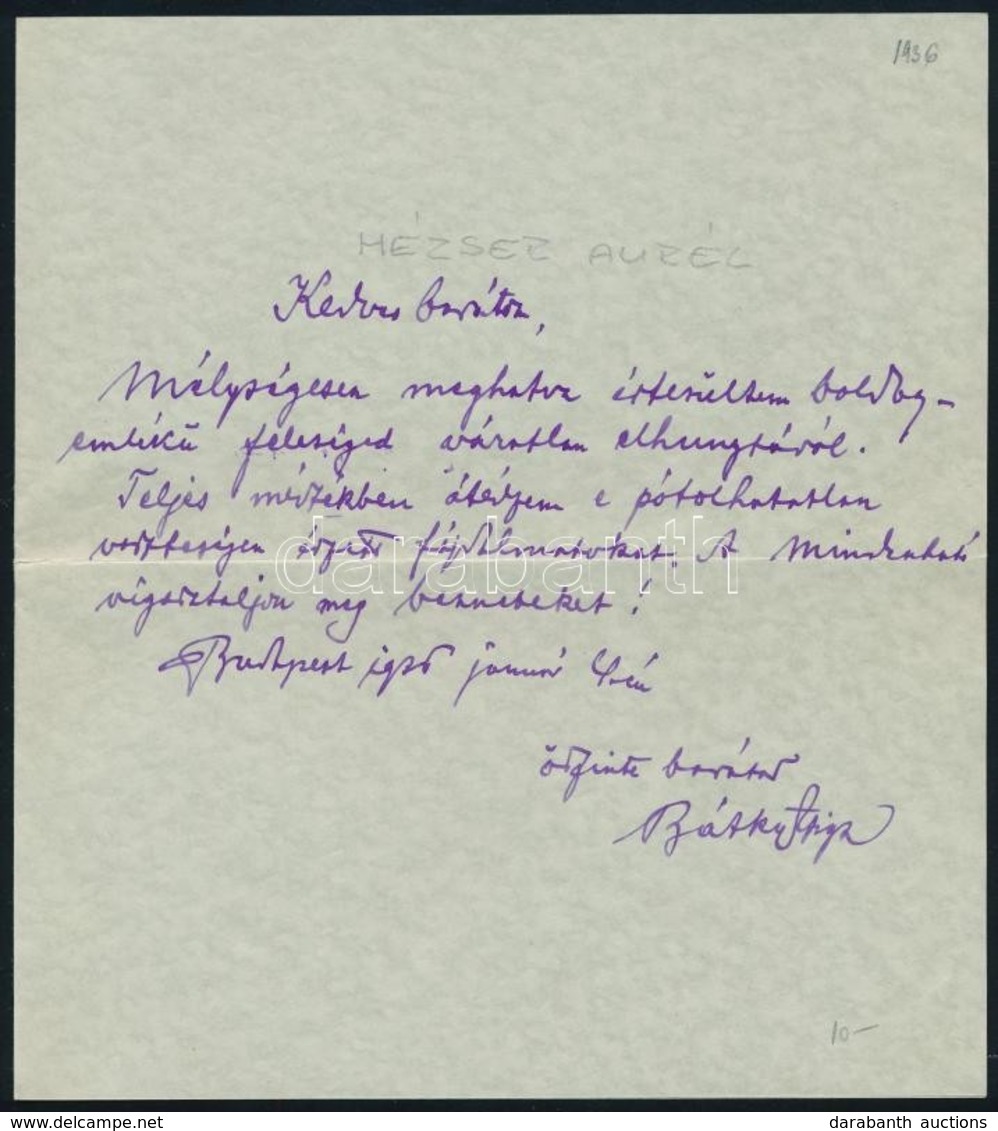 1936
HÉZSER AURÉL
Kedves barátom,
Mélységesen meghatva értesültem boldog-
emlékű feleséged váratlan elhunytáról.
Teljes mértékben átérzem e pótolhatatlan
veszteségen érzett fájdalmatokat. A Mindenható
vigasztaljon meg benneteket!
Budapest 1936 január
őszinte barátod
Bátky Zsigm
10—
darabanth
delcampe.net
darabanth auctions